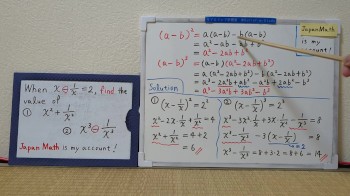 When x - 1/x = 2, find the
value of
① x² + 1/x²
② x³ - 1/x³
Japan Math is my account!
(a-b)² = a(a-b) - b(a-b)
= a² - ab - ab + b²
= a² - 2ab + b²
(a-b)³ = (a-b)(a² - 2ab + b²)
= a(a² - 2ab + b²) - b(a² - 2ab + b²)
= a³ - 2a²b + ab² - a²b + 2ab² - b³
= a³ - 3a²b + 3ab² - b³
Japan Math
is my
account!
Solution
① (x - 1/x)² = 2²
x² - 2x·1/x + 1/x² = 4
x² + 1/x² = 4 + 2
= 6
② (x - 1/x)³ = 2³
x³ - 3x²·1/x + 3x·1/x² - 1/x³ = 8
x³ - 1/x³ - 3(x - 1/x) = 8
= 2
x³ - 1/x³ = 8 + 3·2 = 8 + 6 = 14